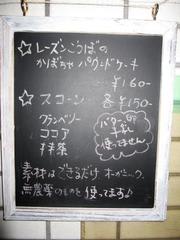 ☆レーズンごぼうの
かぼちゃパウンドケーキ
¥160-
☆スコーン 各¥150-
クランベリー
ココア
抹茶
バター、卵
牛乳
使ってません
素材はできるだけオーガニック、
無農薬のものを使ってます♪